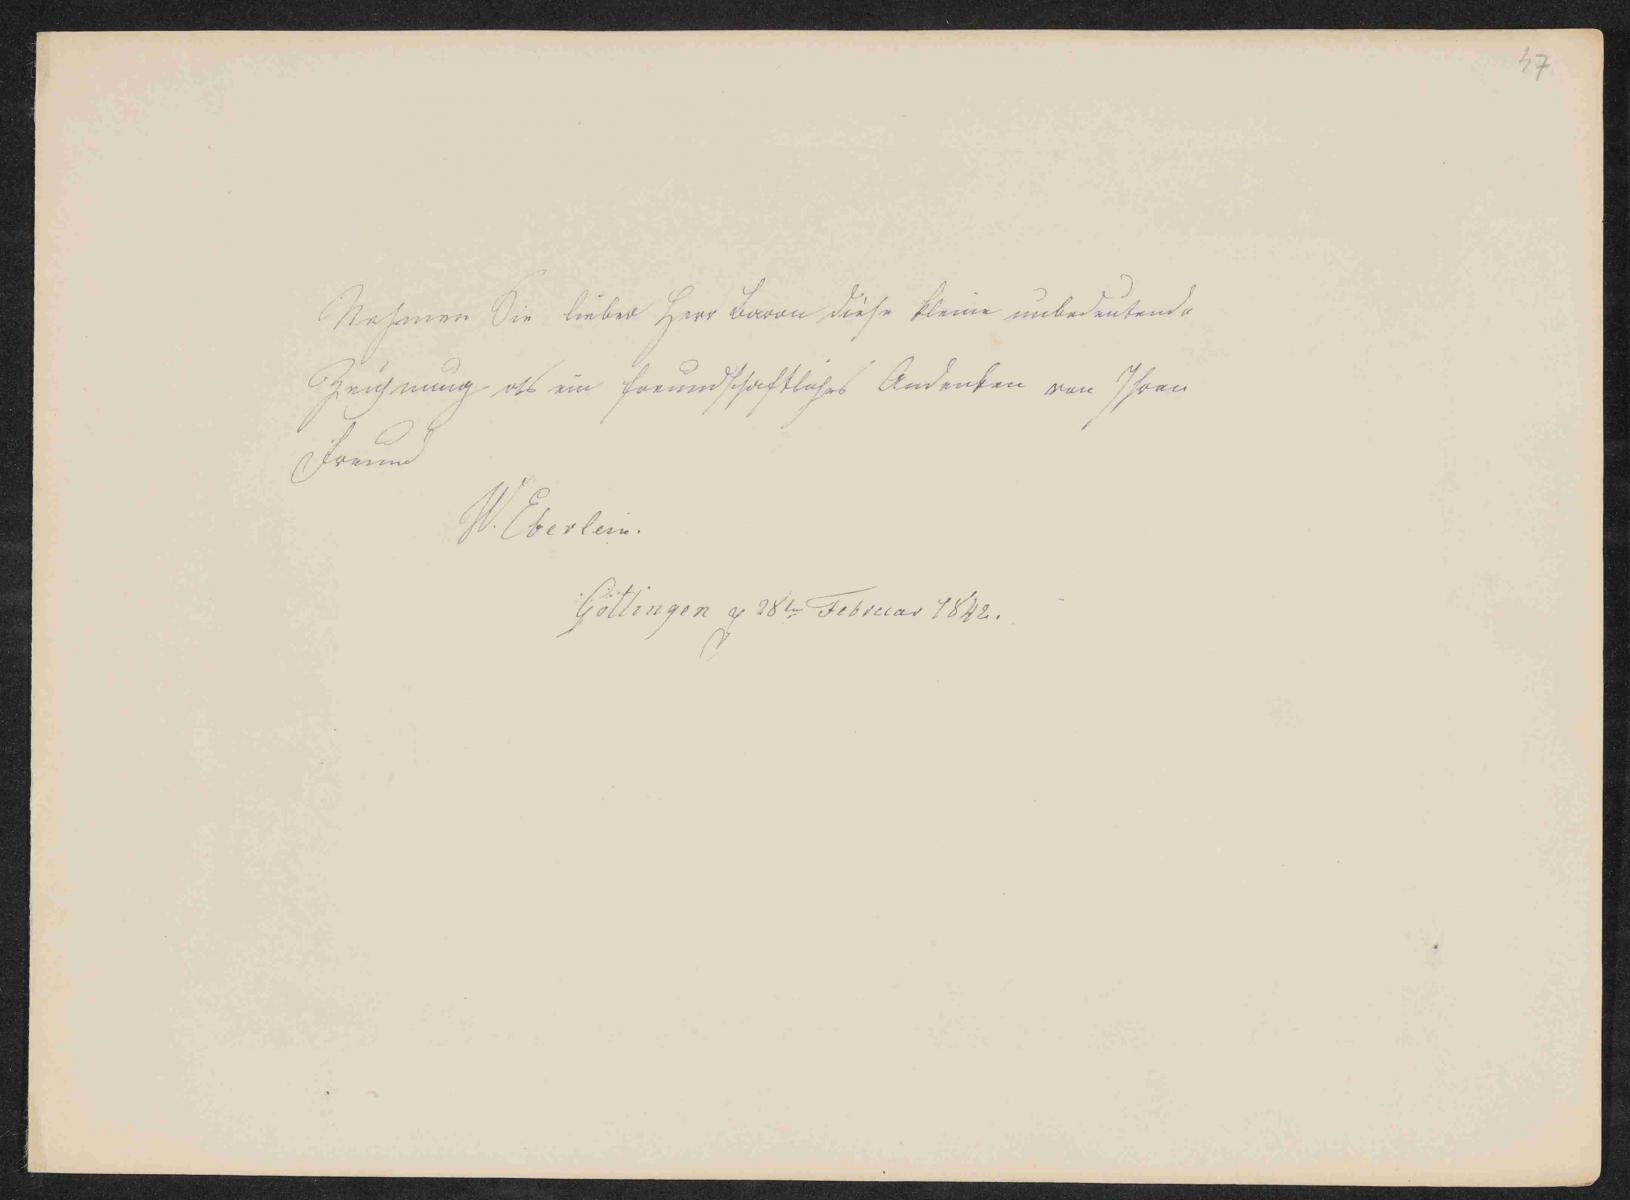 47
Nehmen Sie lieber Herr Baron diese kleine unbedeutende
Zeichnung als ein freundschaftliches Andenken von Ihren
Freund
W. Eberlein.
Göttingen 28ten Februar 1842.